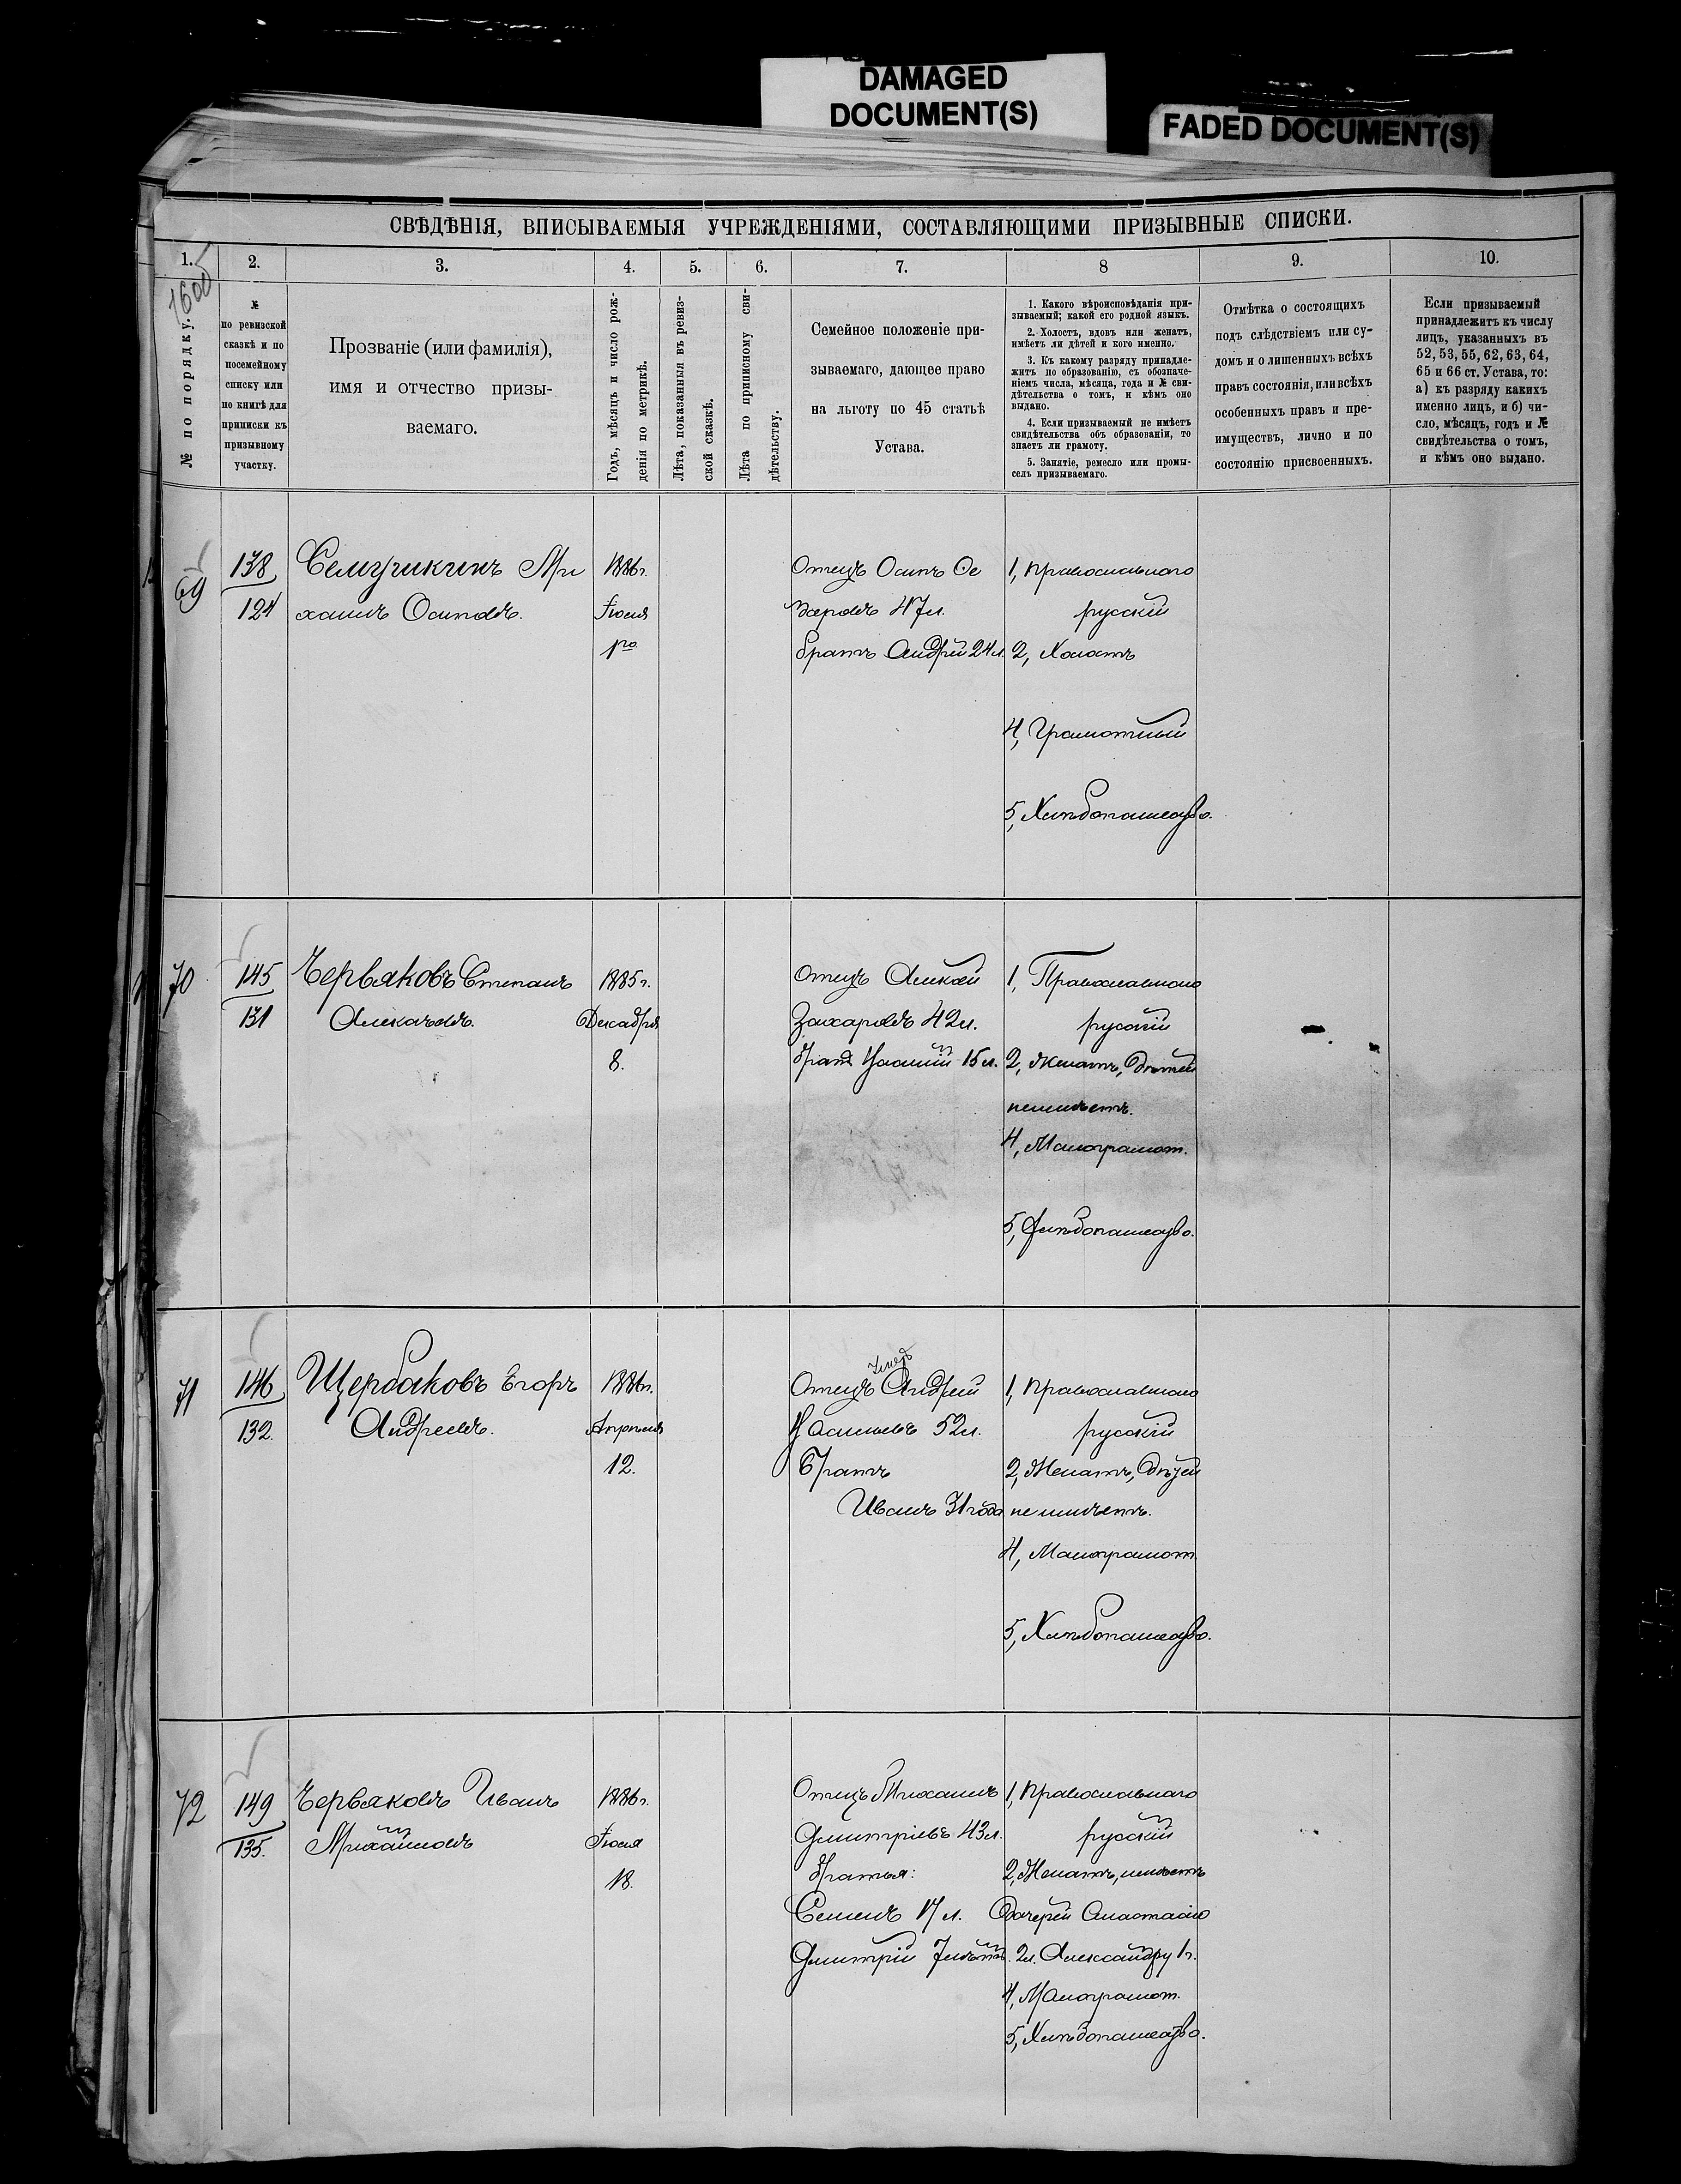 DAMAGED
DOCUMENT(S)
FADED DOCUMENT(S)
СВѢДѢНІЯ, ВПИСЫВАЕМЫЯ УЧРЕЖДЕНІЯМИ, СОСТАВЛЯЮЩИМИ ПРИЗЫВНЫЕ СПИСКИ.
1. 2. 3. 4. 5. 6. 7. 8 9. 10.
1600
№ по порядку.
№
по ревизской
сказкѣ и по
посемейному
списку или
по книгѣ для
приписки къ
призывному
участку.
Прозваніе (или фамилія),
имя и отчество призы-
ваемаго.
Годъ, мѣсяцъ и число рож-
денія по метрикѣ.
Лѣта, показанныя въ ревиз-
ской сказкѣ.
Лѣта по приписному сви-
дѣтельству.
Семейное положеніе при-
зываемаго, дающее право
на льготу по 45 статьѣ
Устава.
1. Какого вѣроисповѣданія при-
зываемый; какой его родной языкъ.
2. Холостъ, вдовъ или женатъ,
имѣетъ ли дѣтей и кого именно.
3. Къ какому разряду принадле-
житъ по образованію, съ обозначе-
ніемъ числа, мѣсяца, года и № сви-
дѣтельства о томъ, и кѣмъ оно
выдано.
4. Если призываемый не имѣетъ
свидѣтельства объ образованіи, то
знаетъ ли грамоту.
5. Занятіе, ремесло или промы-
селъ призываемаго.
Отмѣтка о состоящихъ
подъ слѣдствіемъ или су-
домъ и о лишенныхъ всѣхъ
правъ состоянія, или всѣхъ
особенныхъ правъ и пре-
имуществъ, лично и по
состоянію присвоенныхъ.
Если призываемый
принадлежитъ къ числу
лицъ, указанныхъ въ
52, 53, 55, 62, 63, 64,
65 и 66 ст. Устава, то:
а) къ разряду какихъ
именно лицъ, и б) чи-
сло, мѣсяцъ, годъ и №
свидѣтельства о томъ,
и кѣмъ оно выдано.
69
138
124
Семушкинъ Ми
хаилъ Осиповъ.
1886г.
Іюля
1го
Отецъ Осипъ
47л.
братъ Андрей 24л.
1, Православнаго
русскій
2, Холостъ
4, Грамотный
5, Хлѣбопашество.
70
145
131
Червяковъ Степанъ
Алексѣевъ.
1885г.
Декабря
8.
Отецъ Алексѣй
Захаровъ 42л.
братъ 15л.
1, Православнаго
русскій
2, Женатъ, дѣтей
неимѣетъ.
4, Малограмот.
5, Хлѣбопашество.
71
146
132.
Щербаковъ Егоръ
Андреевъ.
1886г.
Апрѣля
12.
Отецъ Андрей
Васильевъ 52л.
Братъ
Иванъ 31 года
1, Православнаго
русскій
2, Женатъ, дѣтей
не имѣетъ.
4, Малограмот
5, Хлѣбопашество.
72
149
135.
Червяковъ Иванъ
Михайловъ
1886г.
Іюля
18.
Отецъ Михаилъ
Дмитріевъ 43л.
братья:
Семенъ 17 л.
Дмитрій 7 лѣтъ.
1, Православнаго
русскій
2, Женатъ, имѣетъ
дочерей Анастасію
2л. Александру 1г.
4, Малограмот.
5, Хлѣбопашество.